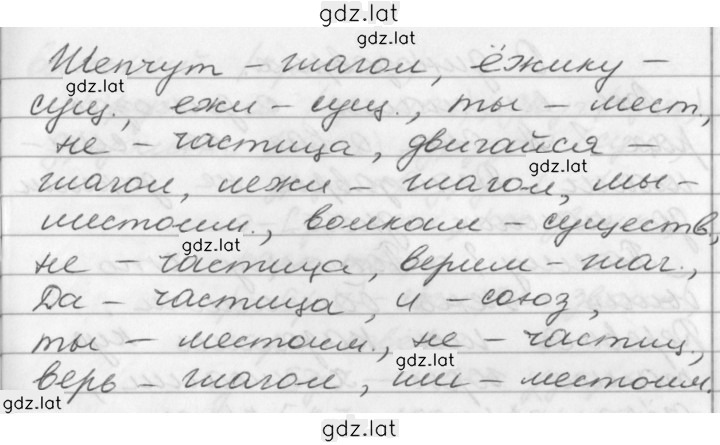 gdz.lat
gdz.lat
Шепчут – глагол, ёжику –
gdz.lat
сущ., ежи – сущ., ты – мест,
не – частица, двигайся –
gdz.lat
глагол, лежи – глагол, мы –
местоим., волкам – существ,
gdz.lat
не – частица, верим – глаг.,
Да – частица, и – союз,
ты – местоим., не – частиц,
gdz.lat
верь – глагол, им – местоим.
gdz.lat
gdz.lat